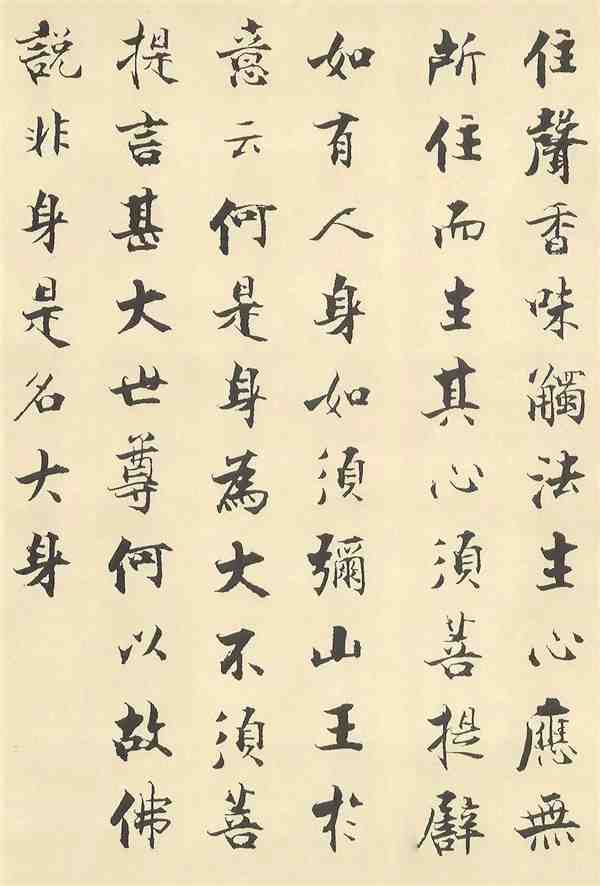 住聲香味觸法生心應無
所住而生其心須菩提譬
如有人身如須彌山王於
意云何是身為大不須菩
提言甚大世尊何以故佛
說非身是名大身